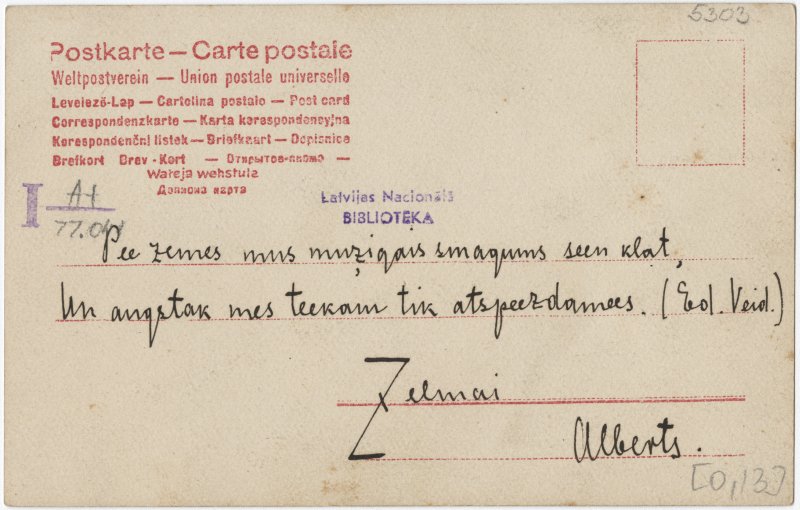 5303
Postkarte — Carte postale
Weltpostverein — Union postale universelle
Levelező-Lap — Cartolina postale — Post card
Correspondenzkarte — Karta korespondencyjna
Korespondenční listek — Briefkaart — Dopisnice
Brefkort Brev-Kort — Открытое-писмо —
Wałeja wehstule
Дописна карта
I A+
77.041
Latvijas Nacionālā
BIBLIOTĒKA
Pee zemes mus muzigais smagums seen klat,
Un augstak mes teekam tik atspeezdamees. (Ed. Veid.)
Zelmai
Alberts.
[0,13]